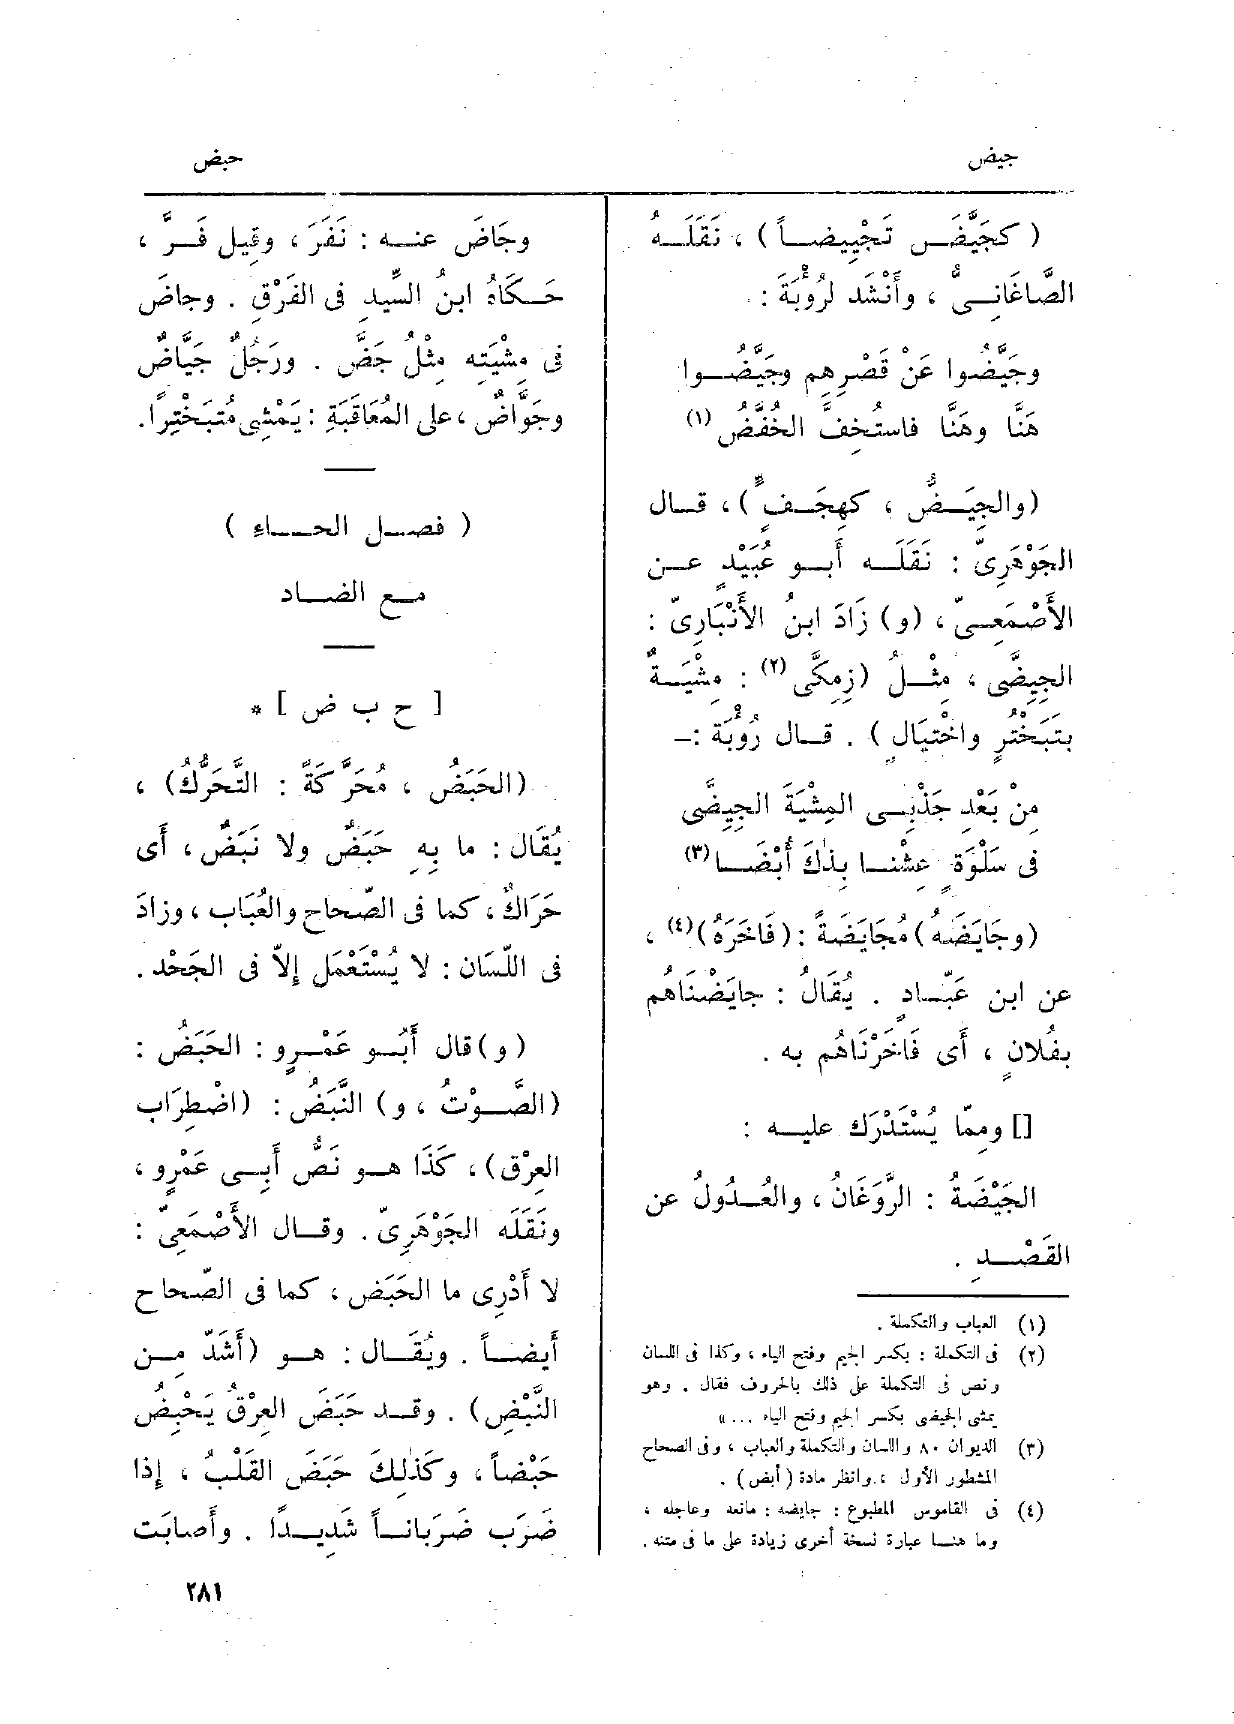 جيض
حبض
( كجَيَّضَ تَجْيِيضاً ) ، نَقَلَهُ
الصّاغَانِىُّ ، وأَنْشَد لرُؤْبَةَ :
وجَيَّضُوا عَنْ قَصْرِهِم وجَيَّضُوا
هَنَّا وهَنَّا فاستُخِفَّ الخُفَّضُ (١)
(والجِيَضُّ ، كهِجَفٍّ) ، قال
الجَوْهَرِىّ : نَقَلَه أَبو عُبَيْدٍ عن
الأَصْمَعِىّ ، (و) زَادَ ابنُ الأَنْبَارِىّ :
الجِيَضَّى ، مثْلُ (زِمِكَّى (٢) : مِشْيَةٌ
بتَبَخْتُرٍ واخْتِيَالٍ ) . قال رُؤْبَة :–
مِنْ بَعْدِ جَذْبِى المِشْيَةَ الجِيَضَّى
فى سَلْوَةٍ عِشْنا بِذٰلكَ أُبْضَا (٣)
(وجَايَضَه) مُجَايَضَةً : (فَاخَرَهُ) (٤) ،
عن ابن عَبّادٍ . يُقَالُ : جايَضْنَاهُم
بفُلانٍ ، أَى فَاخَرْنَاهُم به .
[] وممّا يُسْتَدْرَك عليه :
الجَيْضَةُ : الرَّوَغَانُ ، والعُدُولُ عن
القَصْدِ .
(١) العباب والتكملة .
(٢) فى التكملة : بكسر الجيم وفتح الياء ، وكذا فى اللسان
ونص فى التكملة على ذلك بالحروف فقال . وهو
يمشى الجيضى بكسر الجيم وفتح الياء ... »
(٣) الديوان ٨٠ واللسان والتكملة والعباب ، وفى الصحاح
المشطور الأول ، وانظر مادة (أبض) .
(٤) فى القاموس المطبوع : جايضه : مانعه وعاجله ،
وما هنا عبارة نسخة أخرى زيادة على ما فى متنه .
وجَاضَ عنه : نَفَرَ ، وقِيل فَرَّ ،
حكَاهُ ابنُ السِّيدِ فى الفَرْقِ . وجاضَ
فى مِشْيَتِه مِثْلُ جَضَّ . ورَجُلٌ جَيَّاضٌ
وجَوَّاضٌ ، على المُعَاقَبَةِ : يَمْشِى مُتَبَخْتِرًا .
( فصل الحاء )
مع الضاد
[ ح ب ض ] *
(الحَبَضُ ، مُحَرَّكَةً : التَّحَرُّكُ) ،
يُقَال : ما بِهِ حَبَضٌ ولا نَبَضٌ ، أَى
حَرَاكٌ ، كما فى الصّحاح والعُبَاب ، وزادَ
فى اللِّسَان : لا يُسْتَعْمَل إِلاّ فى الجَحْد .
(و) قال أَبُو عَمْرٍو : الحَبَضُ :
(الصَّوْتُ ، و) النَّبَضُ : (اضْطِرَاب
العِرْق) ، كَذَا هو نَصُّ أَبِى عَمْرٍو ،
ونَقَلَه الجَوْهَرِىّ . وقال الأَصْمَعِىّ :
لا أَدْرِى ما الحَبَض ، كما فى الصّحاح
أَيضاً . ويُقَال : هو (أَشَدّ مِن
النَّبْضِ) . وقد حَبَضَ العِرْقُ يَحْبِضُ
حَبْضاً ، وكَذٰلِكَ حَبَضَ القَلْبُ ، إِذا
ضَرَبَ ضَرَبَاناً شَدِيدًا . وأَصابَت
٢٨١